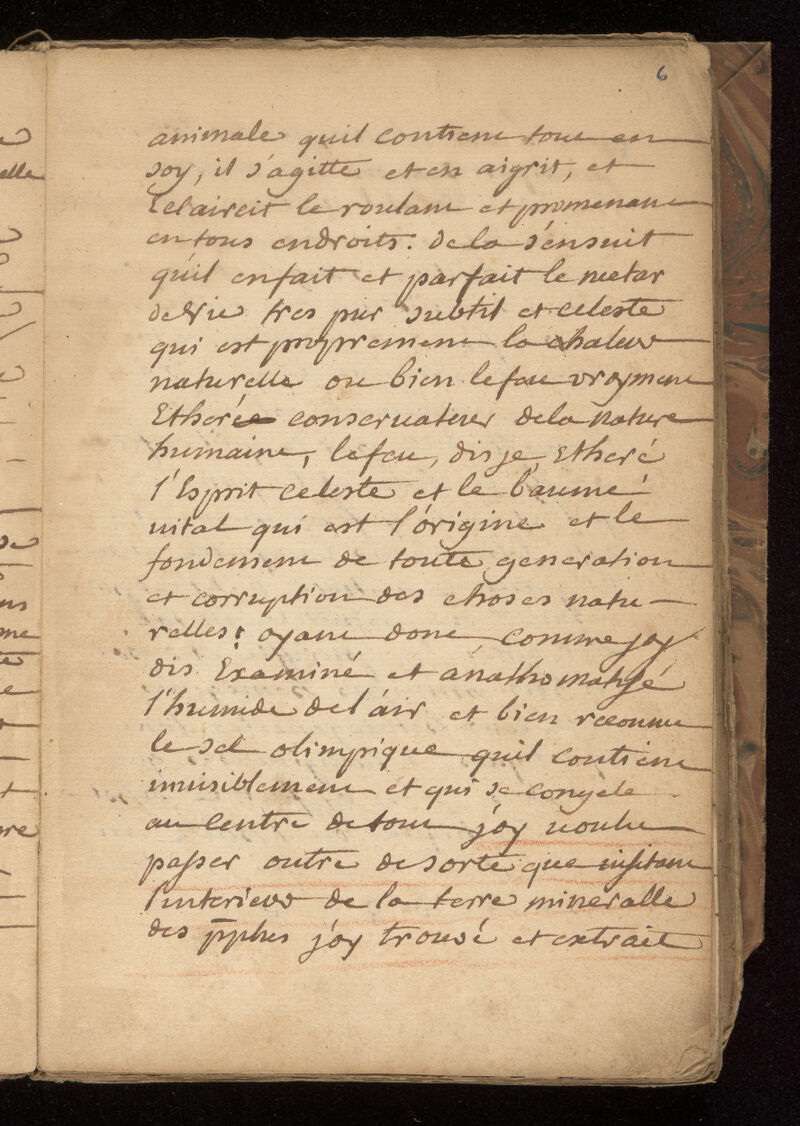 6
animale quil contient tout en
soy, il s'agitte et en aigrit, et
Eclaircit le roulant et promenant
en tous endroits: de la s'ensuit
qu'il en fait et parfait le nectar
de Vie tres pur subtil et celeste
qui est proprement la chaleur
naturelle ou bien le feu vrayment
Etheré conservateur de la nature
humaine, le feu, dis je, Etheré
l'Esprit celeste et le baume
vital qui est l'origine et le
fondement de toute generation
et corruption des choses natu-
relles: ayant donc comme j'ay
dis Examiné et anathomatisé
l'humide de l'air et bien reconnu
le sel olimpique quil contient
invisiblement et qui se congele
au centre de tout j'ay voulu
passer outre de sorte que visitant
l'interieur de la terre mineralle
des pphes j'ay trouvé et extrait
elle